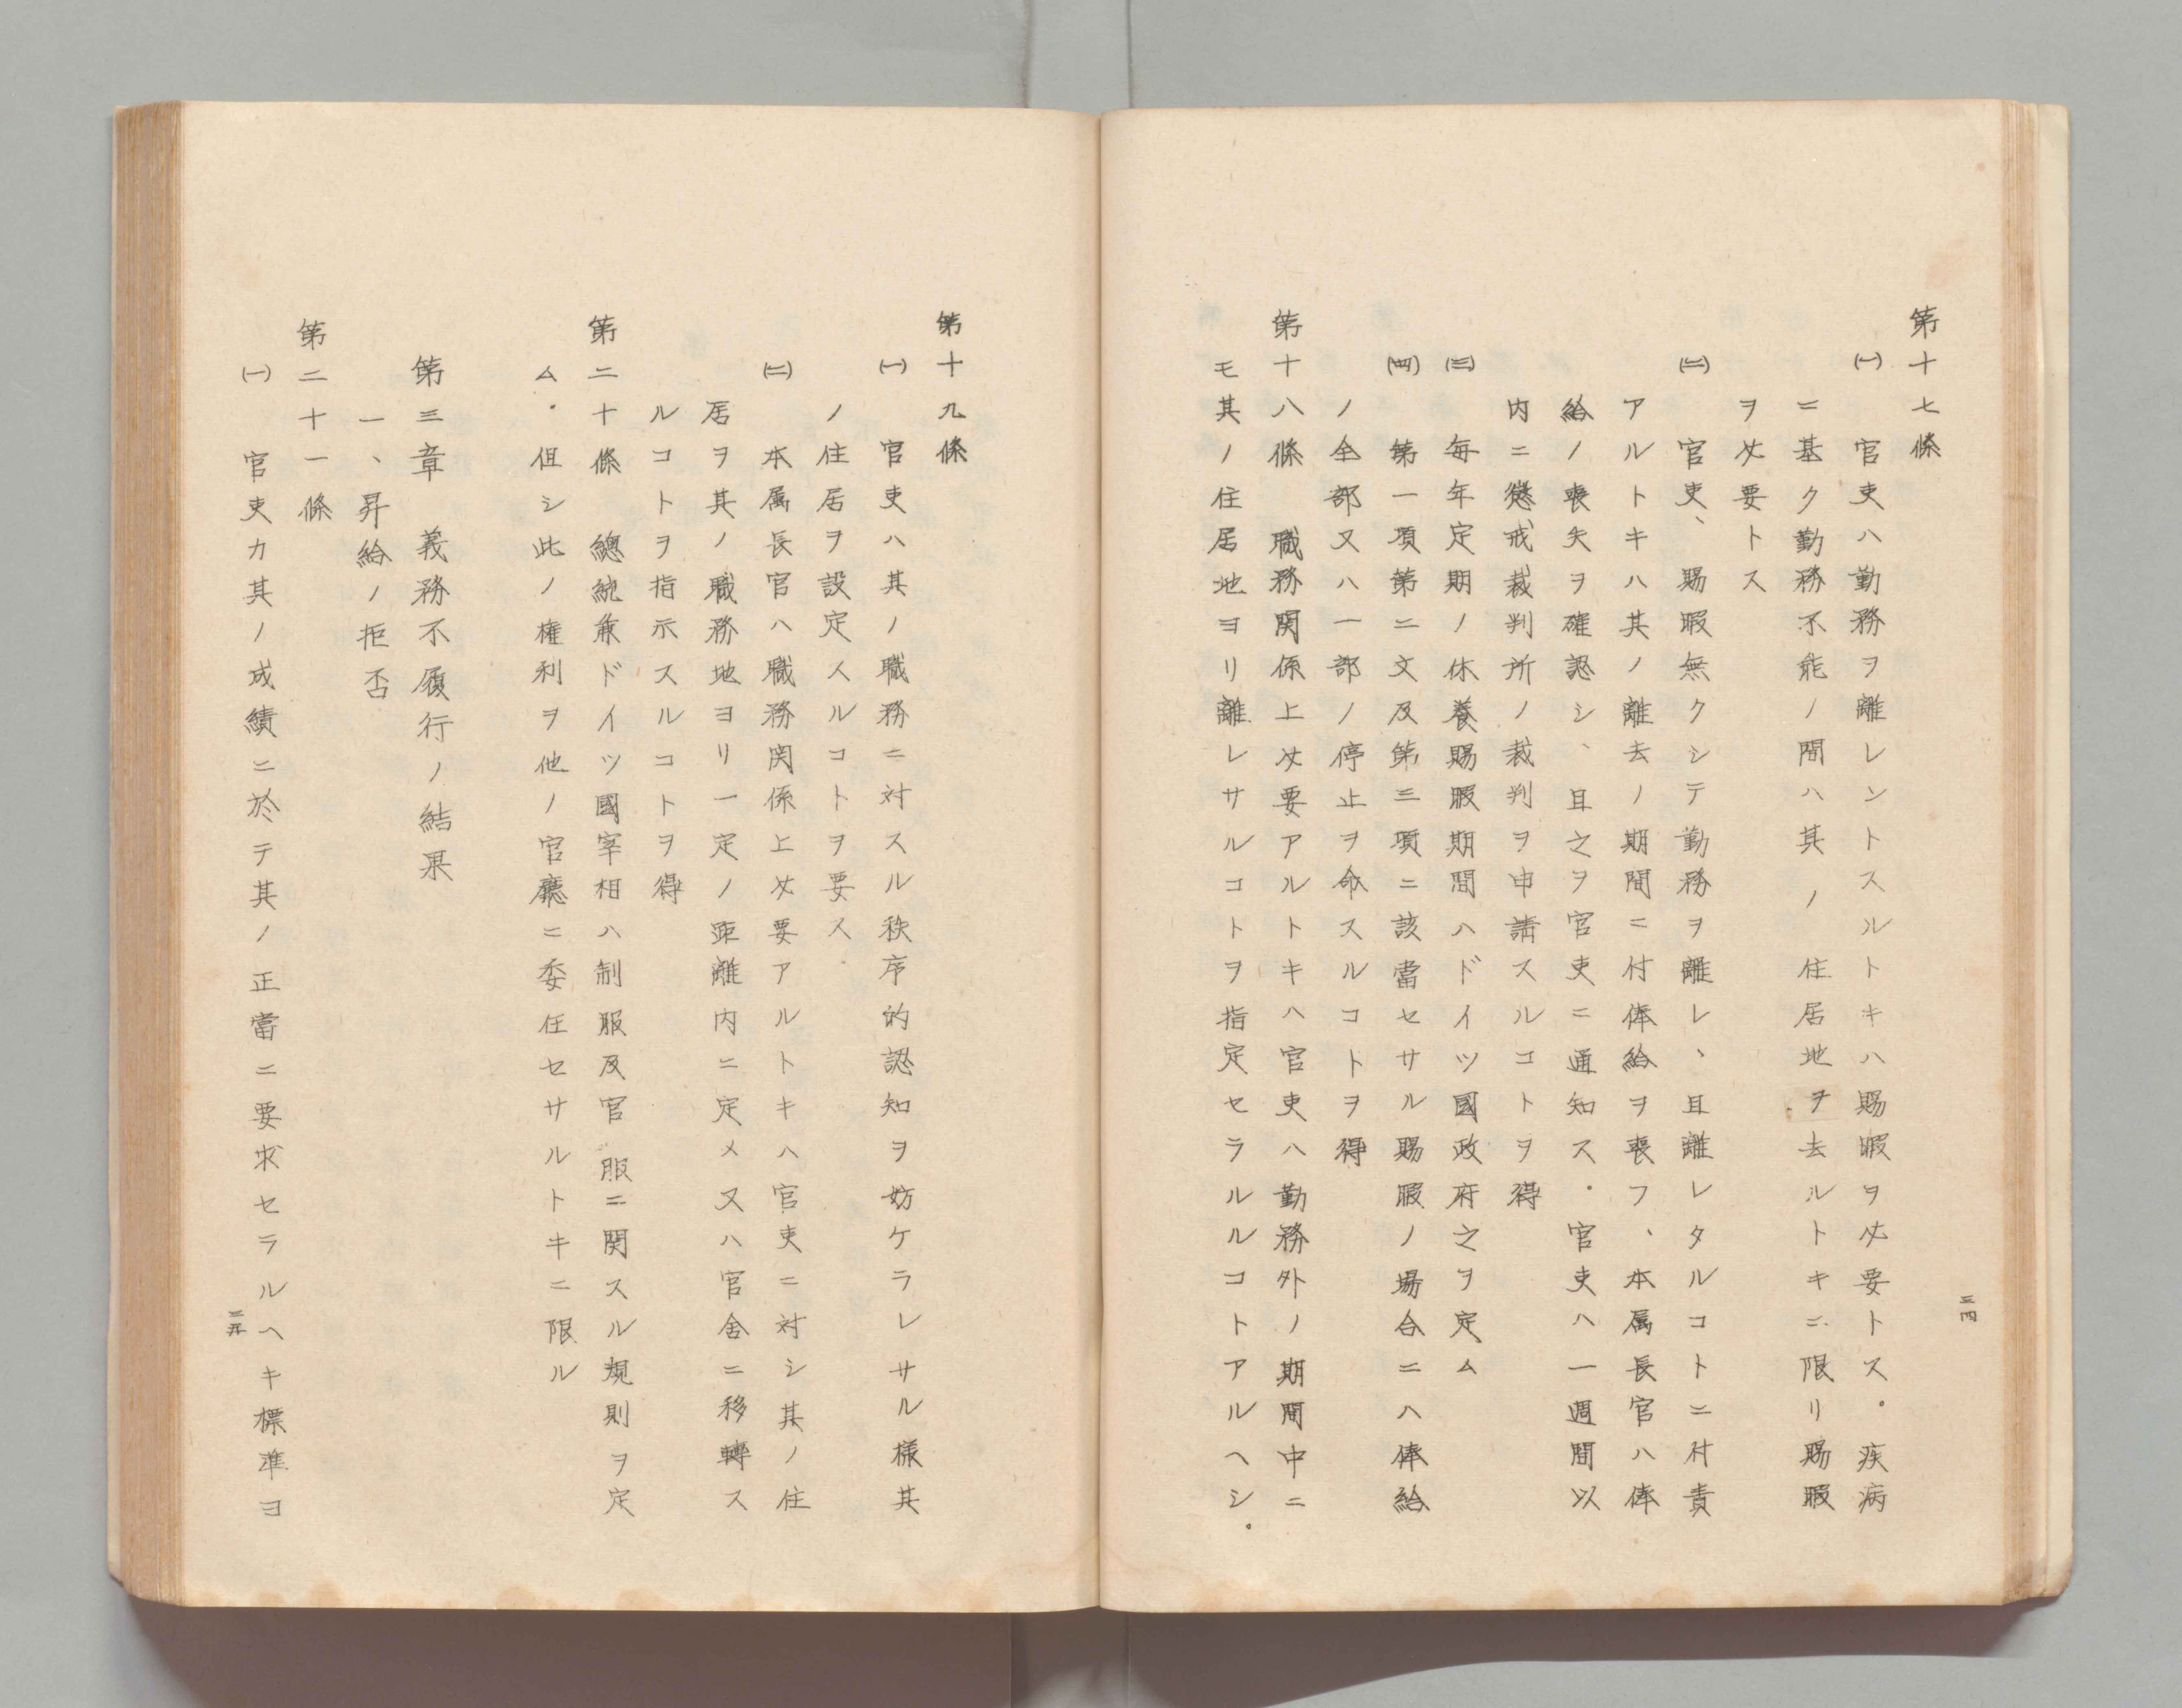 第十七條
㈠　官吏ハ勤務ヲ離レントスルトキハ賜暇ヲ必要トス。疾病
ニ基ク勤務不能ノ間ハ其ノ住居地ヲ去ルトキニ限リ賜暇
ヲ必要トス
㈡　官吏、賜暇無クシテ勤務ヲ離レ、且離レタルコトニ付責
アルトキハ其ノ離去ノ期間ニ付俸給ヲ喪フ、本属長官ハ俸
給ノ喪失ヲ確認シ、且之ヲ官吏ニ通知ス・官吏ハ一週間以
内ニ懲戒裁判所ノ裁判ヲ申請スルコトヲ得
㈢　毎年定期ノ休養賜暇期間ハドイツ國政府之ヲ定ム
㈣　第一項第二文及第三項ニ該當セサル賜暇ノ場合ニハ俸給
ノ全部又ハ一部ノ停止ヲ命スルコトヲ得
第十八條　職務関係上必要アルトキハ官吏ハ勤務外ノ期間中ニ
モ其ノ住居地ヨリ離レサルコトヲ指定セラルルコトアルヘシ。
三四
第十九條
㈠　官吏ハ其ノ職務ニ対スル秩序的認知ヲ妨ケラレサル樣其
ノ住居ヲ設定スルコトヲ要ス.
㈡　本属長官ハ職務関係上必要アルトキハ官吏ニ対シ其ノ住
居ヲ其ノ職務地ヨリ一定ノ距離内ニ定メ又ハ官舍ニ移轉ス
ルコトヲ指示スルコトヲ得
第二十條　總統兼ドイツ國宰相ハ制服及官服ニ関スル規則ヲ定
ム・但シ此ノ権利ヲ他ノ官廳ニ委任セサルトキニ限ル
第三章　義務不履行ノ結果
一、昇給ノ拒否
第二十一條
㈠　官吏カ其ノ成績ニ於テ其ノ正當ニ要求セラルヘキ標準ヨ
三五